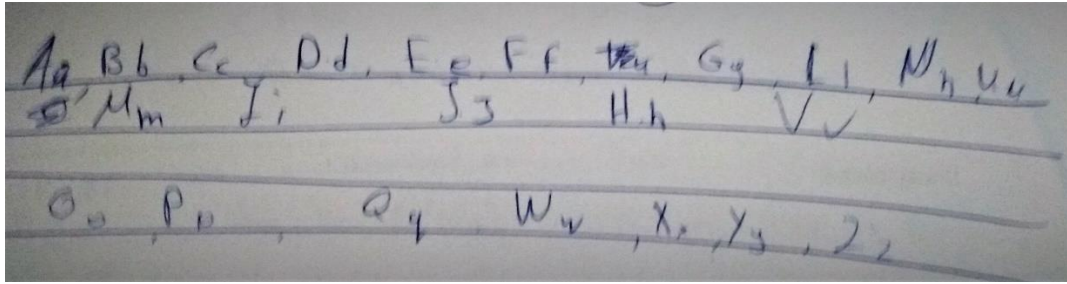 Aa, Bb, Cc, Dd, Ee, Ff, Gg, Ll, Nn, Uu
Mm Ii Jj Hh Vv
Oo, Pp, Qq Ww, Xx, Yy, Zz